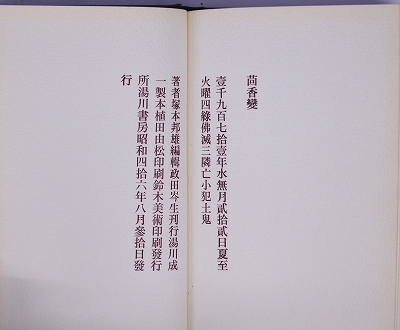 茴香變
壹千九百七拾壹年水無月貳拾貳日夏至
火曜四綠佛滅三隣亡小犯土鬼
著者塚本邦雄編輯政田岑生刊行湯川成
一製本植田由松印刷鈴木美術印刷發行
所湯川書房昭和四拾六年八月參拾日發
行